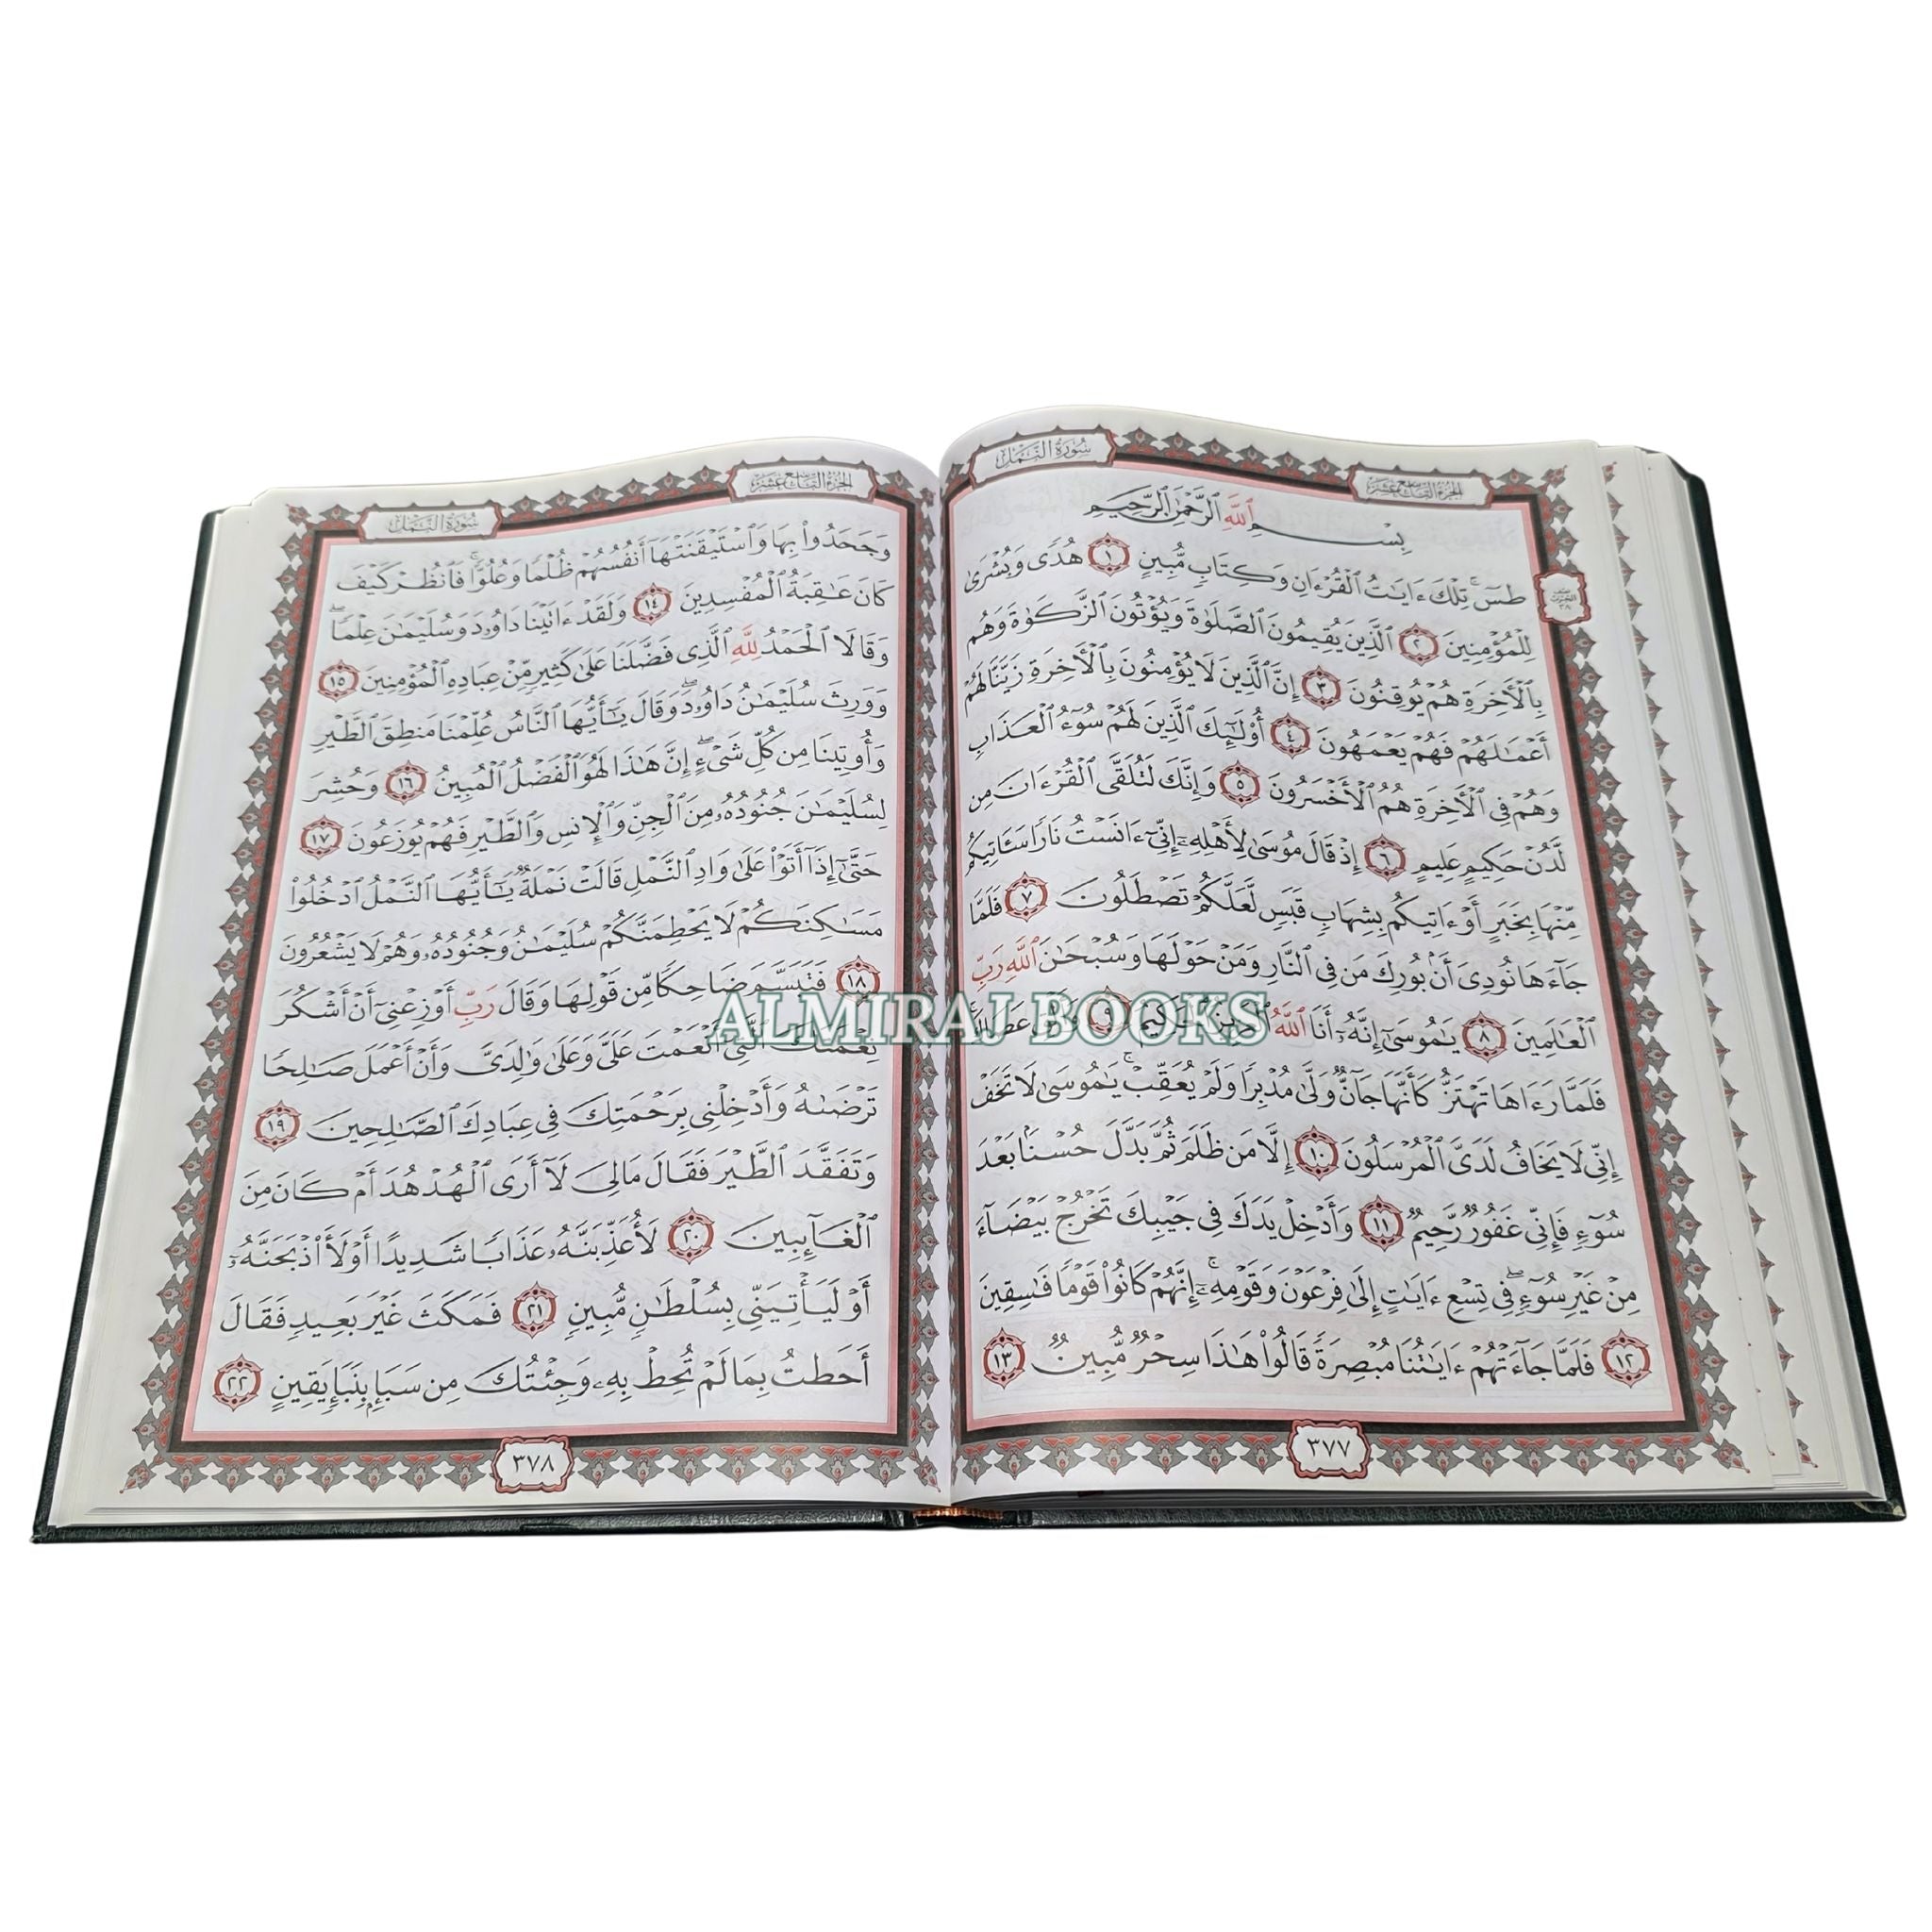 سُورَةُ النَّمْلِ
الجُزْءُ التَّاسِعَ عَشَرَ
بِسْمِ ٱللَّهِ ٱلرَّحْمَٰنِ ٱلرَّحِيمِ
طسٓ ۚ تِلْكَ ءَايَٰتُ ٱلْقُرْءَانِ وَكِتَابٍ مُّبِينٍ ١ هُدًى وَبُشْرَىٰ
لِلْمُؤْمِنِينَ ٢ ٱلَّذِينَ يُقِيمُونَ ٱلصَّلَوٰةَ وَيُؤْتُونَ ٱلزَّكَوٰةَ وَهُم
بِٱلْءَاخِرَةِ هُمْ يُوقِنُونَ ٣ إِنَّ ٱلَّذِينَ لَا يُؤْمِنُونَ بِٱلْءَاخِرَةِ زَيَّنَّا لَهُمْ
أَعْمَٰلَهُمْ فَهُمْ يَعْمَهُونَ ٤ أُو۟لَٰٓئِكَ ٱلَّذِينَ لَهُمْ سُوٓءُ ٱلْعَذَابِ
وَهُمْ فِى ٱلْءَاخِرَةِ هُمُ ٱلْأَخْسَرُونَ ٥ وَإِنَّكَ لَتُلَقَّى ٱلْقُرْءَانَ مِن
لَّدُنْ حَكِيمٍ عَلِيمٍ ٦ إِذْ قَالَ مُوسَىٰ لِأَهْلِهِۦٓ إِنِّىٓ ءَانَسْتُ نَارًا سَـَٔاتِيكُم
مِّنْهَا بِخَبَرٍ أَوْ ءَاتِيكُم بِشِهَابٍ قَبَسٍ لَّعَلَّكُمْ تَصْطَلُونَ ٧ فَلَمَّا
جَآءَهَا نُودِىَ أَنۢ بُورِكَ مَن فِى ٱلنَّارِ وَمَنْ حَوْلَهَا وَسُبْحَٰنَ ٱللَّهِ رَبِّ
ٱلْعَٰلَمِينَ ٨ يَٰمُوسَىٰٓ إِنَّهُۥٓ أَنَا ٱللَّهُ ٱلْعَزِيزُ ٱلْحَكِيمُ ٩ وَأَلْقِ عَصَاكَ
فَلَمَّا رَءَاهَا تَهْتَزُّ كَأَنَّهَا جَآنٌّ وَلَّىٰ مُدْبِرًا وَلَمْ يُعَقِّبْ ۚ يَٰمُوسَىٰ لَا تَخَفْ
إِنِّى لَا يَخَافُ لَدَىَّ ٱلْمُرْسَلُونَ ١٠ إِلَّا مَن ظَلَمَ ثُمَّ بَدَّلَ حُسْنًۢا بَعْدَ
سُوٓءٍ فَإِنِّى غَفُورٌ رَّحِيمٌ ١١ وَأَدْخِلْ يَدَكَ فِى جَيْبِكَ تَخْرُجْ بَيْضَآءَ
مِنْ غَيْرِ سُوٓءٍ ۖ فِى تِسْعِ ءَايَٰتٍ إِلَىٰ فِرْعَوْنَ وَقَوْمِهِۦٓ ۚ إِنَّهُمْ كَانُوا۟ قَوْمًا فَٰسِقِينَ
١٢ فَلَمَّا جَآءَتْهُمْ ءَايَٰتُنَا مُبْصِرَةً قَالُوا۟ هَٰذَا سِحْرٌ مُّبِينٌ ١٣
٣٧٧
الجُزْءُ التَّاسِعَ عَشَرَ
سُورَةُ النَّمْلِ
وَجَحَدُوا۟ بِهَا وَٱسْتَيْقَنَتْهَآ أَنفُسُهُمْ ظُلْمًا وَعُلُوًّا ۚ فَٱنظُرْ كَيْفَ
كَانَ عَٰقِبَةُ ٱلْمُفْسِدِينَ ١٤ وَلَقَدْ ءَاتَيْنَا دَاوُۥدَ وَسُلَيْمَٰنَ عِلْمًا ۖ
وَقَالَا ٱلْحَمْدُ لِلَّهِ ٱلَّذِى فَضَّلَنَا عَلَىٰ كَثِيرٍ مِّنْ عِبَادِهِ ٱلْمُؤْمِنِينَ ١٥
وَوَرِثَ سُلَيْمَٰنُ دَاوُۥدَ ۖ وَقَالَ يَٰٓأَيُّهَا ٱلنَّاسُ عُلِّمْنَا مَنطِقَ ٱلطَّيْرِ
وَأُوتِينَا مِن كُلِّ شَىْءٍ ۖ إِنَّ هَٰذَا لَهُوَ ٱلْفَضْلُ ٱلْمُبِينُ ١٦ وَحُشِرَ
لِسُلَيْمَٰنَ جُنُودُهُۥ مِنَ ٱلْجِنِّ وَٱلْإِنسِ وَٱلطَّيْرِ فَهُمْ يُوزَعُونَ ١٧
حَتَّىٰٓ إِذَآ أَتَوْا۟ عَلَىٰ وَادِ ٱلنَّمْلِ قَالَتْ نَمْلَةٌ يَٰٓأَيُّهَا ٱلنَّمْلُ ٱدْخُلُوا۟
مَسَٰكِنَكُمْ لَا يَحْطِمَنَّكُمْ سُلَيْمَٰنُ وَجُنُودُهُۥ وَهُمْ لَا يَشْعُرُونَ
١٨ فَتَبَسَّمَ ضَاحِكًا مِّن قَوْلِهَا وَقَالَ رَبِّ أَوْزِعْنِىٓ أَنْ أَشْكُرَ
نِعْمَتَكَ ٱلَّتِىٓ أَنْعَمْتَ عَلَىَّ وَعَلَىٰ وَٰلِدَىَّ وَأَنْ أَعْمَلَ صَٰلِحًا
تَرْضَىٰهُ وَأَدْخِلْنِى بِرَحْمَتِكَ فِى عِبَادِكَ ٱلصَّٰلِحِينَ ١٩
وَتَفَقَّدَ ٱلطَّيْرَ فَقَالَ مَالِىَ لَآ أَرَى ٱلْهُدْهُدَ أَمْ كَانَ مِنَ
ٱلْغَآئِبِينَ ٢٠ لَأُعَذِّبَنَّهُۥ عَذَابًا شَدِيدًا أَوْ لَأَا۟ذْبَحَنَّهُۥٓ
أَوْ لَيَأْتِيَنِّى بِسُلْطَٰنٍ مُّبِينٍ ٢١ فَمَكَثَ غَيْرَ بَعِيدٍ فَقَالَ
أَحَطتُ بِمَا لَمْ تُحِطْ بِهِۦ وَجِئْتُكَ مِن سَبَإٍۭ بِنَبَإٍ يَقِينٍ ٢٢
٣٧٨
ALMIRAJ BOOKS